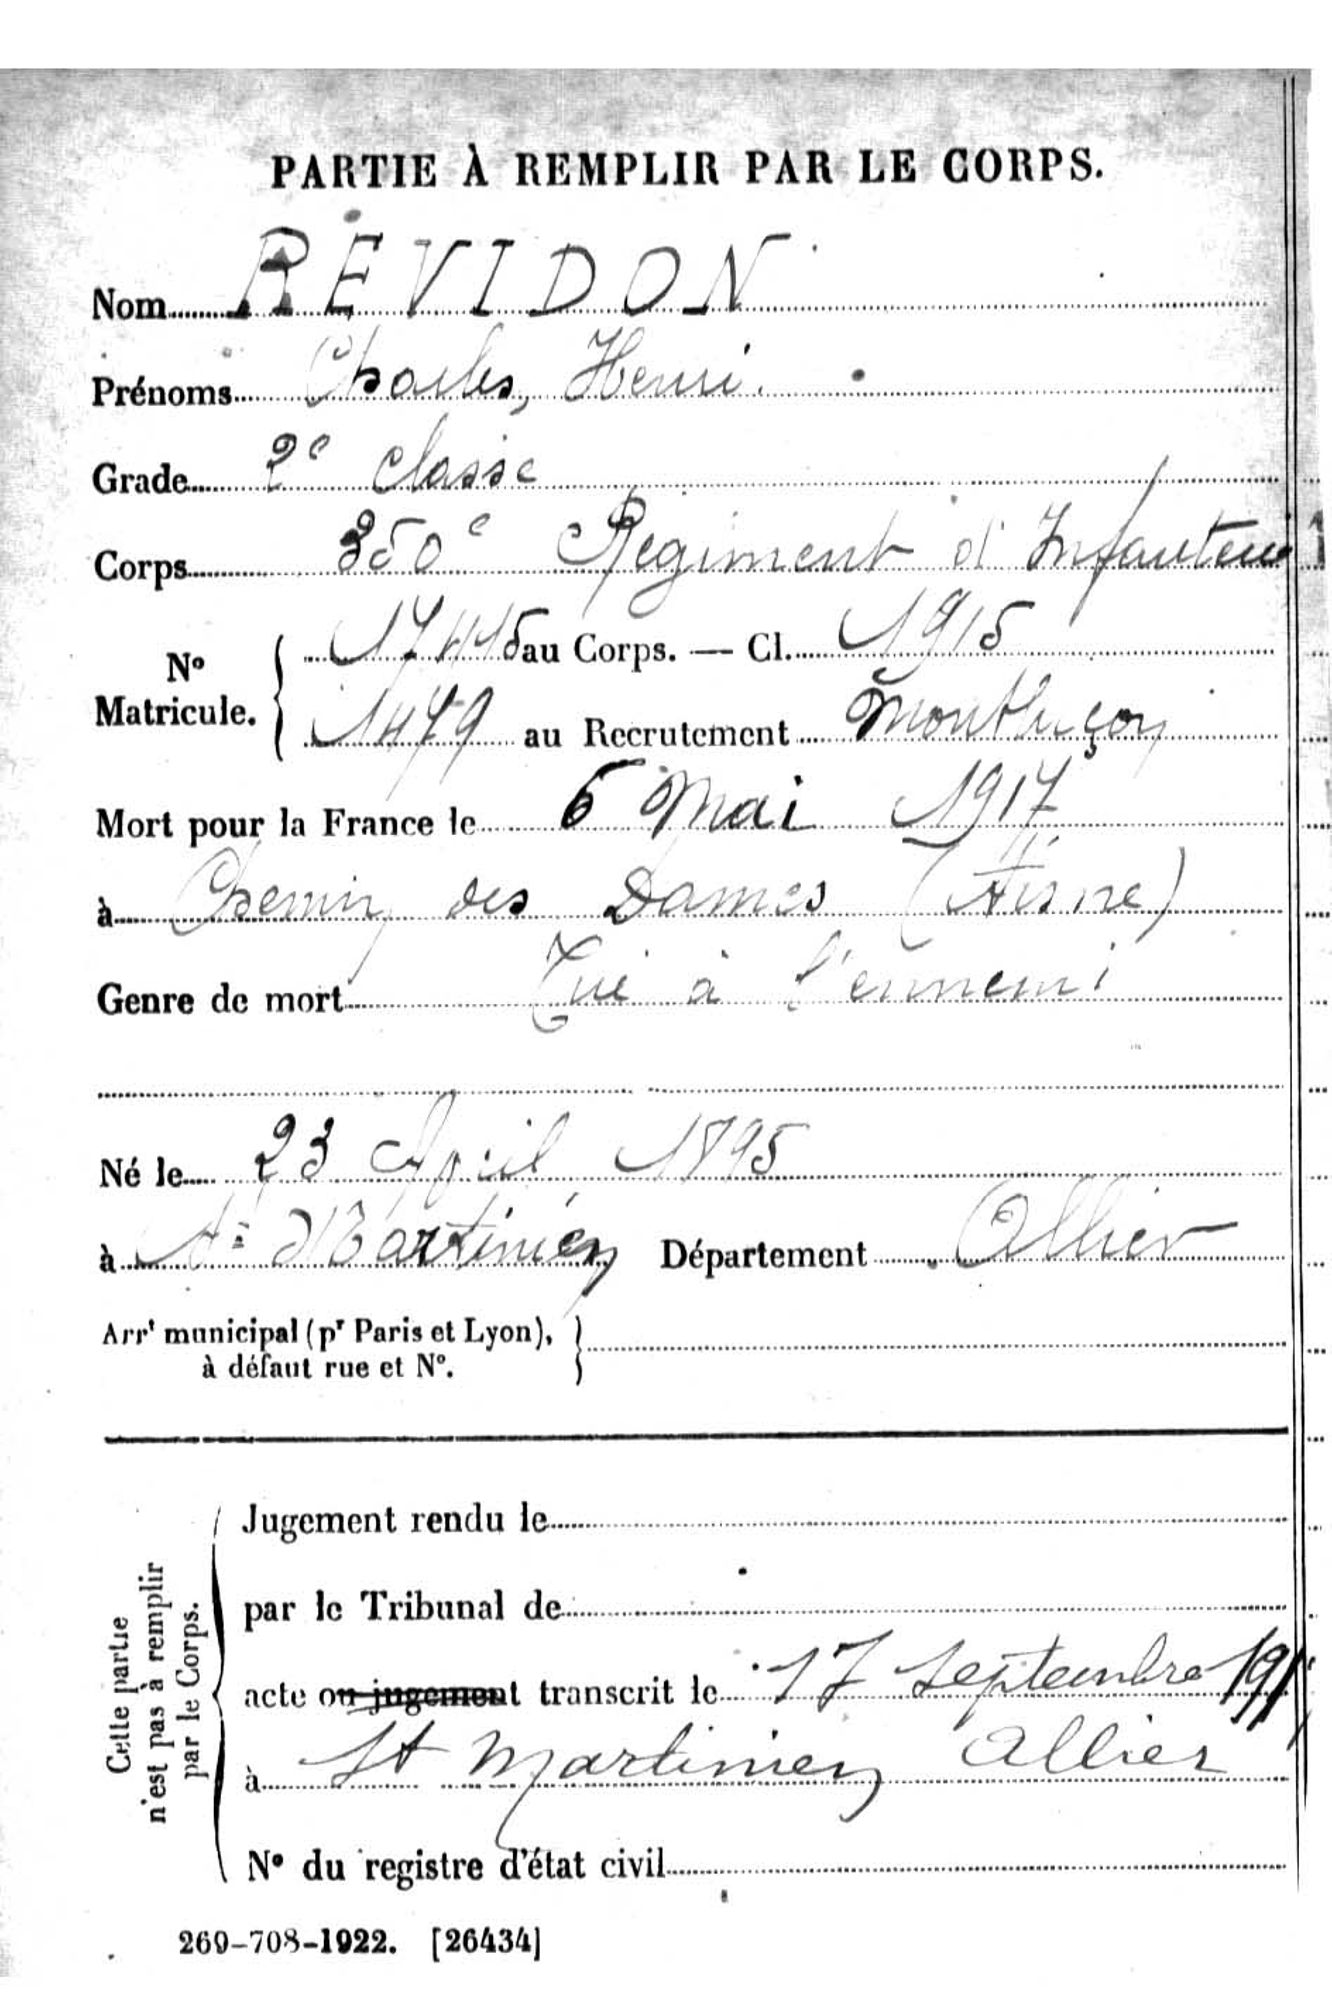 PARTIE À REMPLIR PAR LE CORPS.
Nom REVIDON
Prénoms Charles, Henri.
Grade 2e classe
Corps 350e Régiment d'Infanterie
No Matricule. 17445 au Corps. — Cl. 1915
1479 au Recrutement Montluçon
Mort pour la France le 6 Mai 1917
à Chemin des Dames (Aisne)
Genre de mort Tué à l'ennemi
Né le 23 Avril 1895
à St Martinien Département Allier
Arrt municipal (pr Paris et Lyon),
à défaut rue et No.
Cette partie
n'est pas à remplir
par le Corps.
Jugement rendu le
par le Tribunal de
acte ou jugement transcrit le 17 Septembre
à St Martinien Allier
No du registre d'état civil
269-708-1922. [26434]